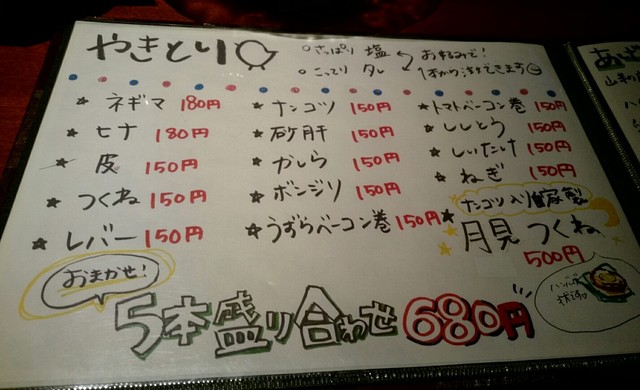 やきとり
○さっぱり 塩
○こってり タレ
お好みで!
1本から注文できます
★ ネギマ 180円
★ ヒナ 180円
★ 皮 150円
★ つくね 150円
★ レバー 150円
★ ナンコツ 150円
★ 砂肝 150円
★ かしら 150円
★ ボンジリ 150円
★ うずらベーコン巻 150円
★ トマトベーコン巻 150円
★ ししとう 150円
★ しいたけ 150円
★ ねぎ 150円
ナンコツ入り自家製
★ 月見つくね
500円
おまかせ!
5本盛り合わせ 680円